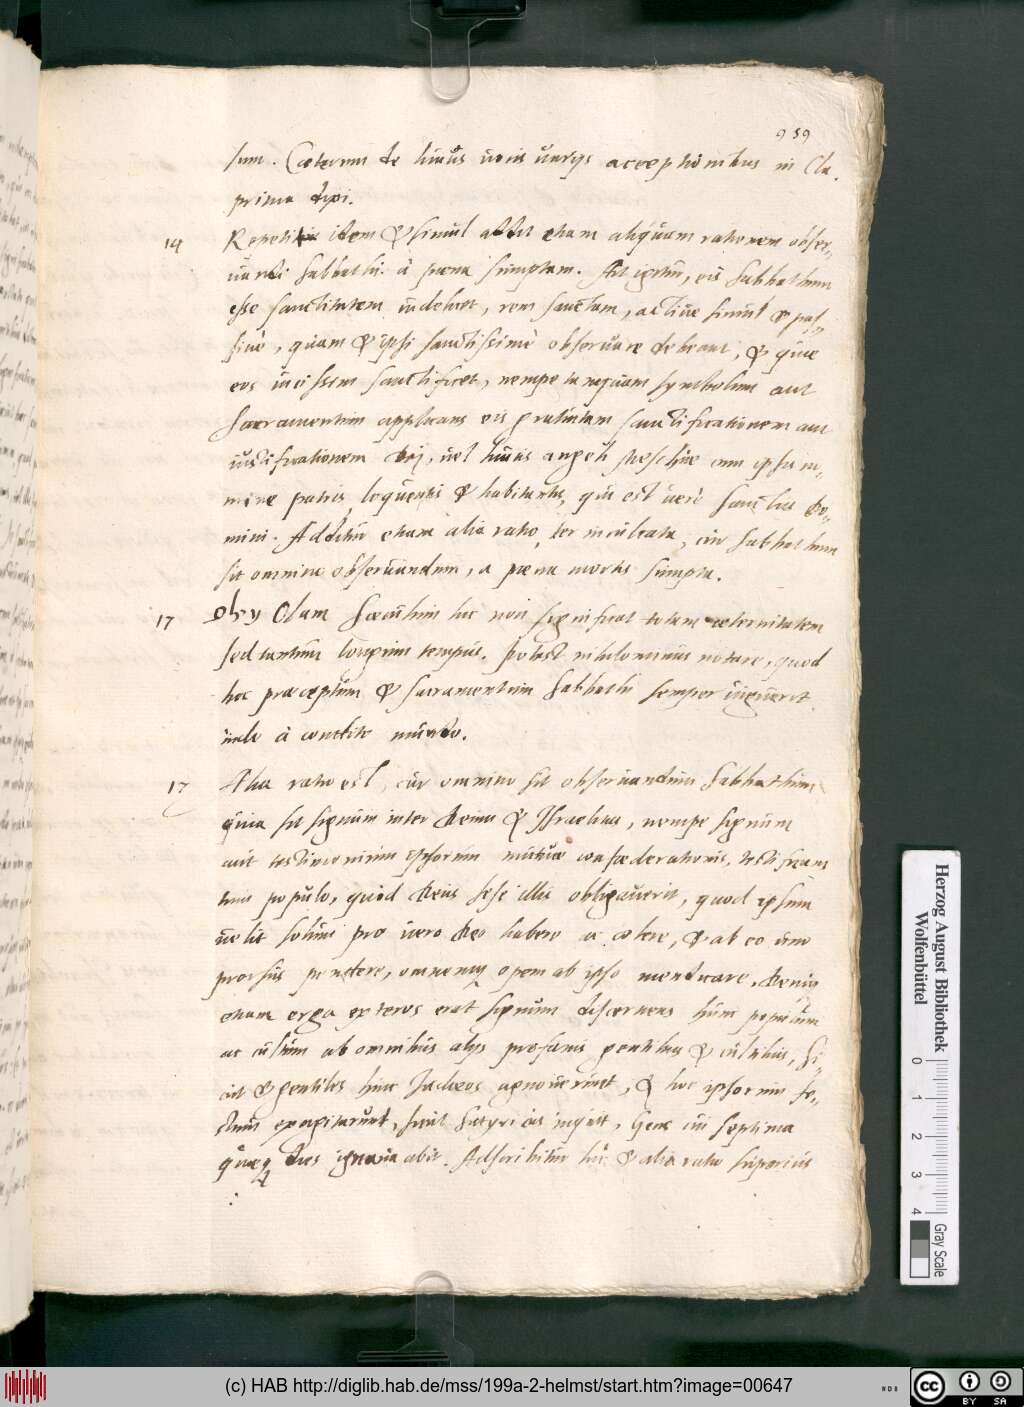 959
sum. Caeterum de huius uocis uarijs acceptionibus in Cla.
prima dixi.
14 Repetit item & simul addit etiam aliquam rationem obser=
uandi sabbathi à poena sumptam. Ait igitur, eis Sabbathum
esse sanctitatem uidelicet, rem sanctam, actiue simul & pas=
siue, quam & ipsi sanctissimè obseruare debeant, & quae
eos uicissim sanctificet, nempe tanquam symbolum aut
Sacramentum applicans eis gratuitam sanctificationem aut
iustificationem Dei, uel huius angeli siue cum ipsis no=
mine patris loquentis & habitantis, qui est uerè Sanctus Do=
mini. Additur etiam alia ratio, ter inculcata, cur Sabbathum
sit omnino obseruandum, a poena mortis sumpta.
17 Olam Saeculum hic non significat totam aeternitatem
sed tantum longum tempus. Potest nihilominus notare, quod
hoc praeceptum & sacramentum Sabbathi semper uiguerit
inde à condito mundo.
17 Alia ratio est, cur omnino sit obseruandum Sabbathum
quia sit signum inter Deum & Israelitas, nempe signum
aut testimonium ipsorum mutuae confoederationis, testificans
tum populo, quòd Deus sese illis obligauerit, quod ipsum
uelit solum pro uero Deo habere ac colere, & ab eo uno
prorsus pendere, omnemq opem ab ipso mendicare. Deniq
etiam erga exteros erat signum discernens hunc populum
ac cultum ab omnibus alijs profanis gentibus & cultibus, Si=
cut & gentiles hinc Iudaeos agnouerunt, & hoc ipsorum fe=
stum exagitarunt, sicut Satyricus inquit, Gens cui septima
quaeq dies ignaua abit. Adscribitur hic & alia ratio superius